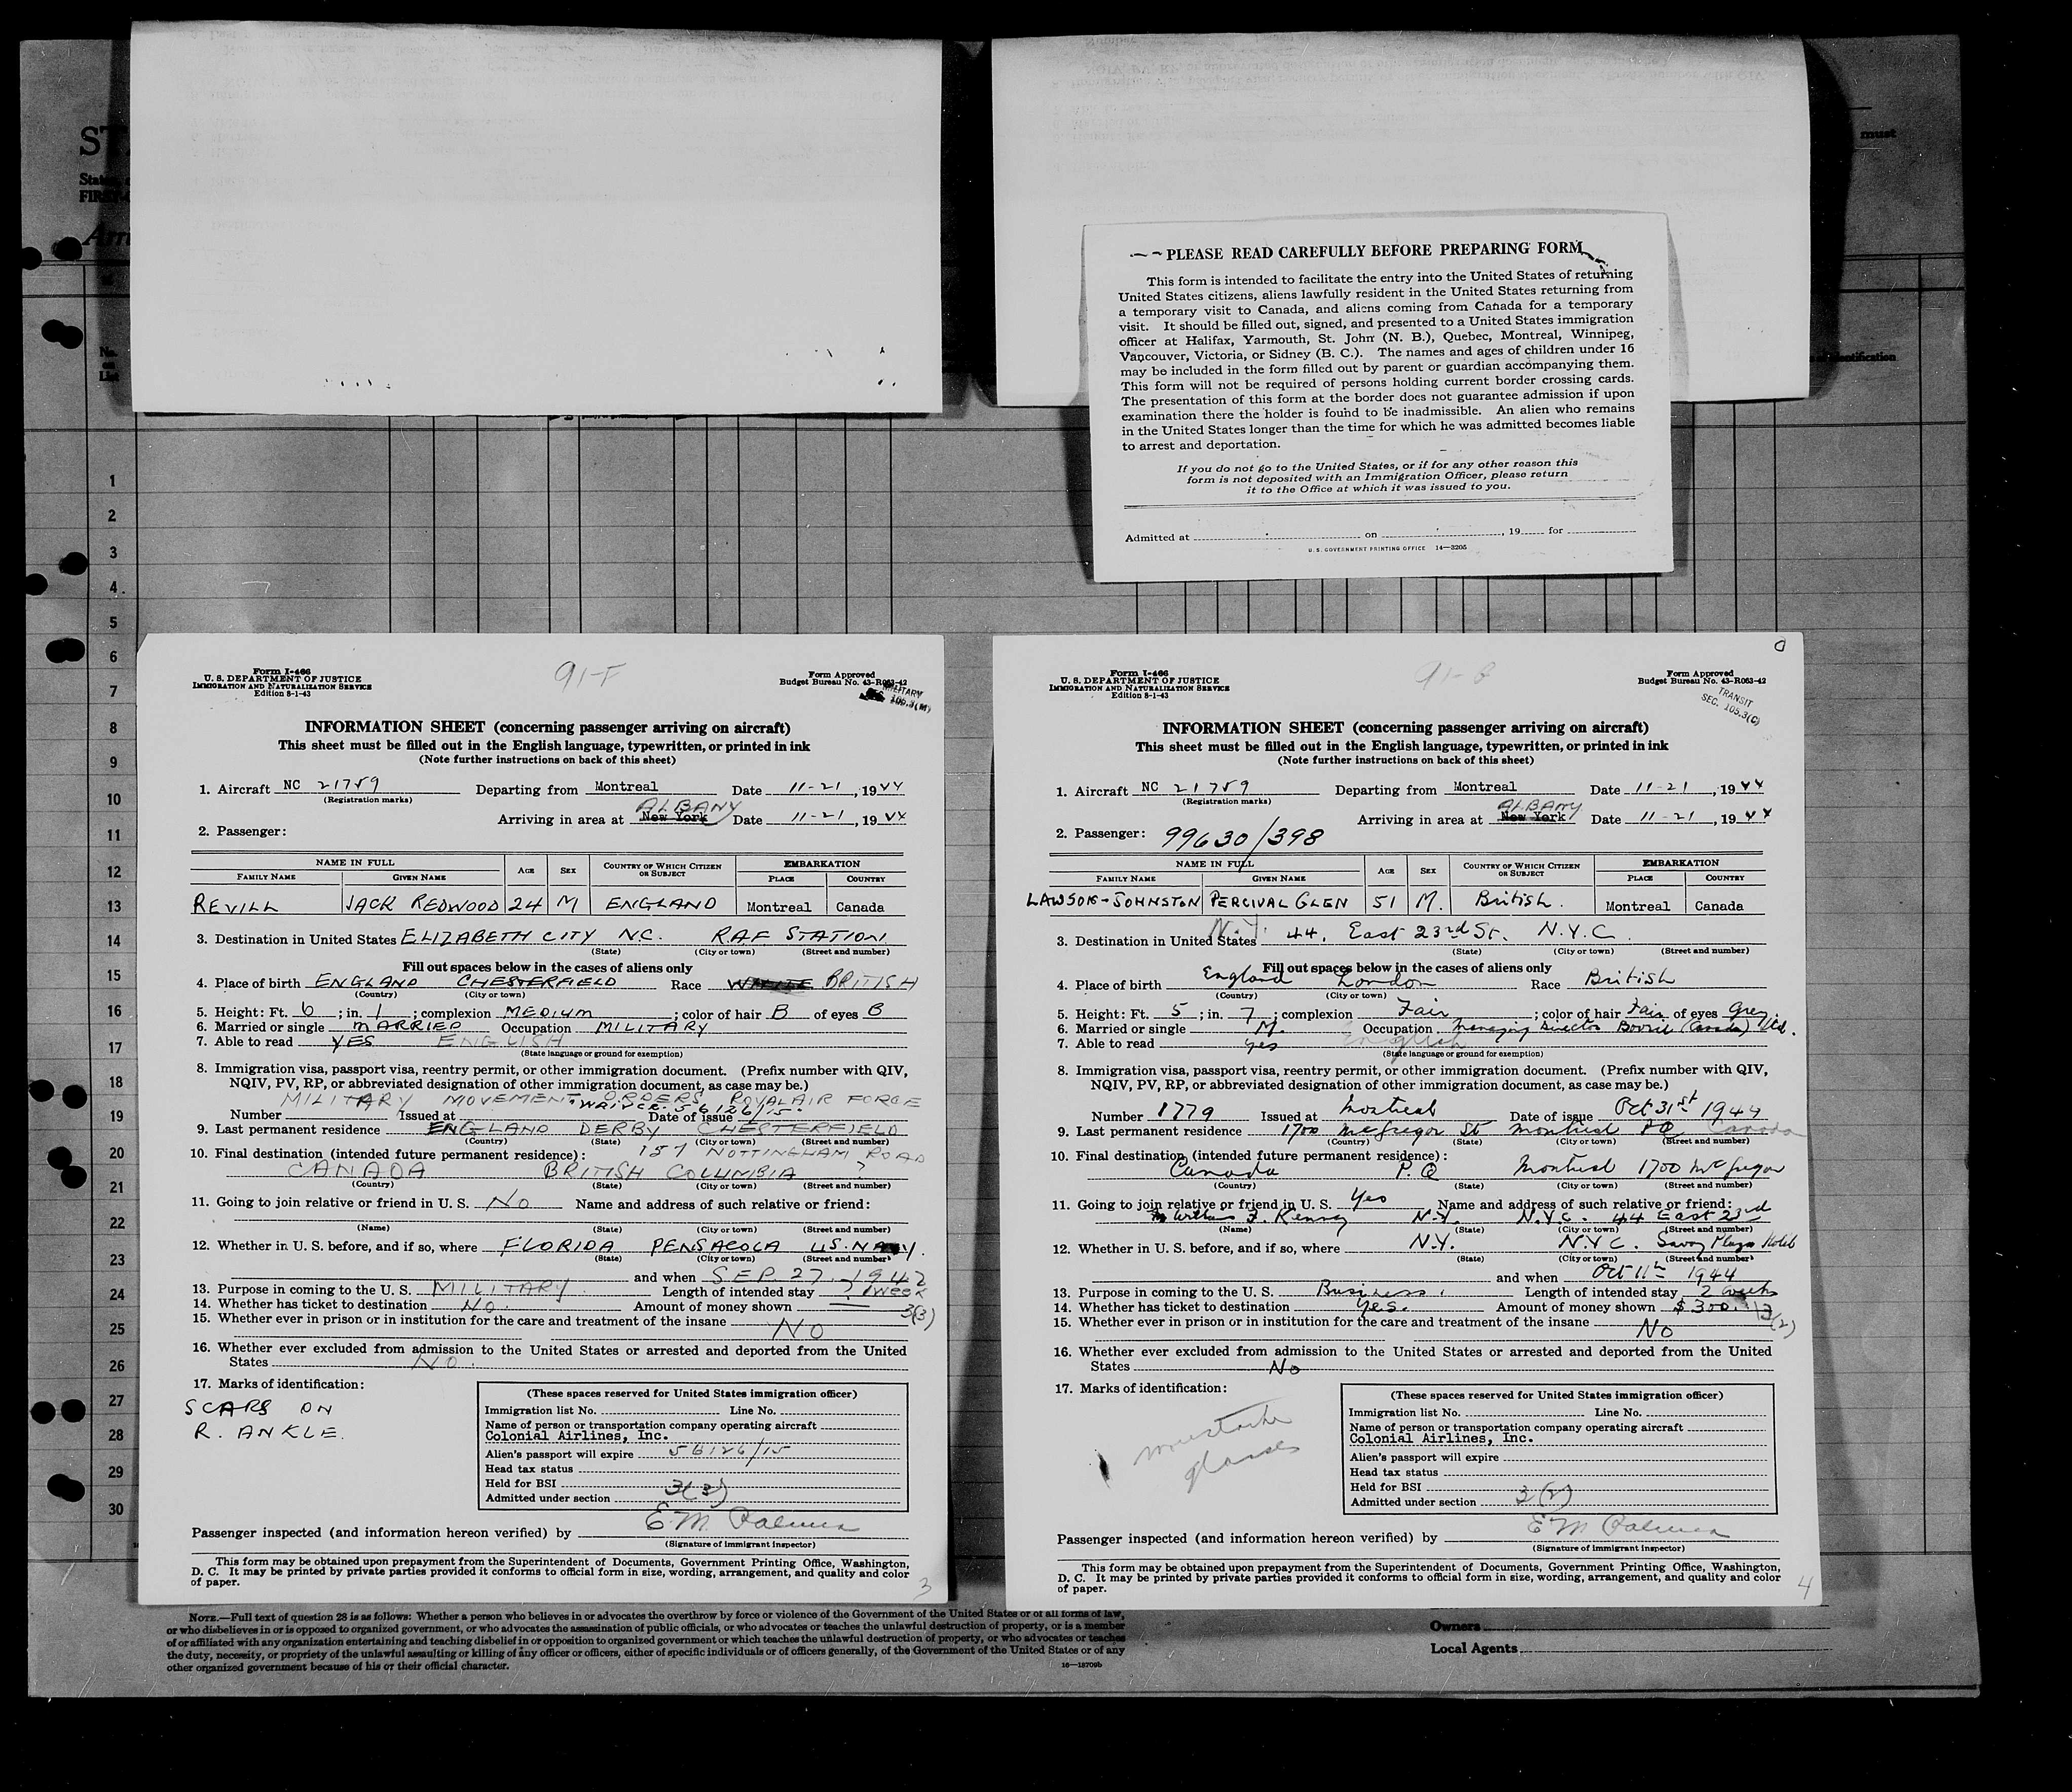 must
No.
on
List
1
2
3
4
5
6
7
8
9
10
11
12
13
14
15
16
17
18
19
20
21
22
23
24
25
26
27
28
29
30
PLEASE READ CAREFULLY BEFORE PREPARING FORM
This form is intended to facilitate the entry into the United States of returning
United States citizens, aliens lawfully resident in the United States returning from
a temporary visit to Canada, and aliens coming from Canada for a temporary
visit. It should be filled out, signed, and presented to a United States immigration
officer at Halifax, Yarmouth, St. John (N. B.), Quebec, Montreal, Winnipeg,
Vancouver, Victoria, or Sidney (B. C.). The names and ages of children under 16
may be included in the form filled out by parent or guardian accompanying them.
This form will not be required of persons holding current border crossing cards.
The presentation of this form at the border does not guarantee admission if upon
examination there the holder is found to be inadmissible. An alien who remains
in the United States longer than the time for which he was admitted becomes liable
to arrest and deportation.
If you do not go to the United States, or if for any other reason this
form is not deposited with an Immigration Officer, please return
it to the Office at which it was issued to you.
Admitted at on , 19 for
U. S. GOVERNMENT PRINTING OFFICE 14—3205
Form I-466
U. S. DEPARTMENT OF JUSTICE
IMMIGRATION AND NATURALIZATION SERVICE
Edition 8-1-43
91-F
Form Approved
Budget Bureau No. 43-R063-42
MILITARY
SEC. 105.3(M)
INFORMATION SHEET (concerning passenger arriving on aircraft)
This sheet must be filled out in the English language, typewritten, or printed in ink
(Note further instructions on back of this sheet)
1. Aircraft NC 21759 Departing from Montreal Date 11-21, 1944
(Registration marks)
ALBANY
Arriving in area at New York Date 11-21, 1944
2. Passenger:
NAME IN FULL AGE SEX COUNTRY OF WHICH CITIZEN OR SUBJECT EMBARKATION
FAMILY NAME GIVEN NAME PLACE COUNTRY
REVILL JACK REDWOOD 24 M ENGLAND Montreal Canada
3. Destination in United States ELIZABETH CITY N.C. RAF STATION
(State) (City or town) (Street and number)
Fill out spaces below in the cases of aliens only
4. Place of birth ENGLAND CHESTERFIELD Race WHITE BRITISH
(Country) (City or town)
5. Height: Ft. 6; in. 1; complexion MEDIUM; color of hair B of eyes B
6. Married or single MARRIED Occupation MILITARY
7. Able to read YES ENGLISH
(State language or ground for exemption)
8. Immigration visa, passport visa, reentry permit, or other immigration document. (Prefix number with QIV,
NQIV, PV, RP, or abbreviated designation of other immigration document, as case may be.)
MILITARY MOVEMENT ORDERS ROYAL AIR FORCE
WAIVER. 56126/15.
Number Issued at Date of issue
9. Last permanent residence ENGLAND DERBY CHESTERFIELD
(Country) (State) (City or town) (Street and number)
10. Final destination (intended future permanent residence): 157 NOTTINGHAM ROAD
CANADA BRITISH COLUMBIA ?
(Country) (State) (City or town) (Street and number)
11. Going to join relative or friend in U. S. NO Name and address of such relative or friend:
(Name) (State) (City or town) (Street and number)
12. Whether in U. S. before, and if so, where FLORIDA PENSACOLA U.S. NAVY.
(State) (City or town) (Street and number)
and when SEP. 27. 1942
13. Purpose in coming to the U. S. MILITARY Length of intended stay ? 1 WEEK
14. Whether has ticket to destination NO. Amount of money shown —
3(3)
15. Whether ever in prison or in institution for the care and treatment of the insane NO
16. Whether ever excluded from admission to the United States or arrested and deported from the United
States NO.
17. Marks of identification:
SCARS ON
R. ANKLE.
(These spaces reserved for United States immigration officer)
Immigration list No. Line No.
Name of person or transportation company operating aircraft
Colonial Airlines, Inc.
Alien's passport will expire 56126/15
Head tax status
Held for BSI
Admitted under section 3(3)
Passenger inspected (and information hereon verified) by E M Palmer
(Signature of immigrant inspector)
This form may be obtained upon prepayment from the Superintendent of Documents, Government Printing Office, Washington,
D. C. It may be printed by private parties provided it conforms to official form in size, wording, arrangement, and quality and color
of paper.
3
Form I-466
U. S. DEPARTMENT OF JUSTICE
IMMIGRATION AND NATURALIZATION SERVICE
Edition 8-1-43
Form Approved
Budget Bureau No. 43-R063-42
TRANSIT
SEC. 105.3(C)
INFORMATION SHEET (concerning passenger arriving on aircraft)
This sheet must be filled out in the English language, typewritten, or printed in ink
(Note further instructions on back of this sheet)
1. Aircraft NC 21759 Departing from Montreal Date 11-21, 1944
(Registration marks)
ALBANY
Arriving in area at New York Date 11-21, 1944
2. Passenger: 99630/398
NAME IN FULL AGE SEX COUNTRY OF WHICH CITIZEN OR SUBJECT EMBARKATION
FAMILY NAME GIVEN NAME PLACE COUNTRY
LAWSON-JOHNSTON PERCIVAL GLEN 51 M. British. Montreal Canada
3. Destination in United States N.Y. 44, East 23rd St. N.Y.C.
(State) (City or town) (Street and number)
Fill out spaces below in the cases of aliens only
4. Place of birth England London Race British
(Country) (City or town)
5. Height: Ft. 5; in. 7; complexion Fair; color of hair Fair of eyes Grey.
6. Married or single M. Occupation Managing Director Bovril (Canada) Ltd.
7. Able to read yes English
(State language or ground for exemption)
8. Immigration visa, passport visa, reentry permit, or other immigration document. (Prefix number with QIV,
NQIV, PV, RP, or abbreviated designation of other immigration document, as case may be.)
Number 1779 Issued at Montreal Date of issue Oct 31st 1944
9. Last permanent residence 1700 McGregor St Montreal PQ Canada
(Country) (State) (City or town) (Street and number)
10. Final destination (intended future permanent residence):
Canada P.Q Montreal 1700 McGregor
(Country) (State) (City or town) (Street and number)
11. Going to join relative or friend in U. S. Yes Name and address of such relative or friend:
N.Y. N.Y.C. 44 East 23rd
(Name) (State) (City or town) (Street and number)
12. Whether in U. S. before, and if so, where N.Y. N.Y.C. Savoy Plaza Hotel
(State) (City or town) (Street and number)
and when Oct 11th 1944
13. Purpose in coming to the U. S. Business. Length of intended stay 2 weeks
14. Whether has ticket to destination Yes. Amount of money shown $300.
3(2)
15. Whether ever in prison or in institution for the care and treatment of the insane No
16. Whether ever excluded from admission to the United States or arrested and deported from the United
States No
17. Marks of identification:
moustache
glasses
(These spaces reserved for United States immigration officer)
Immigration list No. Line No.
Name of person or transportation company operating aircraft
Colonial Airlines, Inc.
Alien's passport will expire
Head tax status
Held for BSI
Admitted under section 3(2)
Passenger inspected (and information hereon verified) by E M Palmer
(Signature of immigrant inspector)
This form may be obtained upon prepayment from the Superintendent of Documents, Government Printing Office, Washington,
D. C. It may be printed by private parties provided it conforms to official form in size, wording, arrangement, and quality and color
of paper.
4
NOTE.—Full text of question 28 is as follows: Whether a person who believes in or advocates the overthrow by force or violence of the Government of the United States or of all forms of law,
or who disbelieves in or is opposed to organized government, or who advocates the assassination of public officials, or who advocates or teaches the unlawful destruction of property, or is a member
of or affiliated with any organization entertaining and teaching disbelief in or opposition to organized government or which teaches the unlawful destruction of property, or who advocates or teaches
the duty, necessity, or propriety of the unlawful assaulting or killing of any officer or officers, either of specific individuals or of officers generally, of the Government of the United States or of any
other organized government because of his or their official character.
16—18709b
Owners
Local Agents